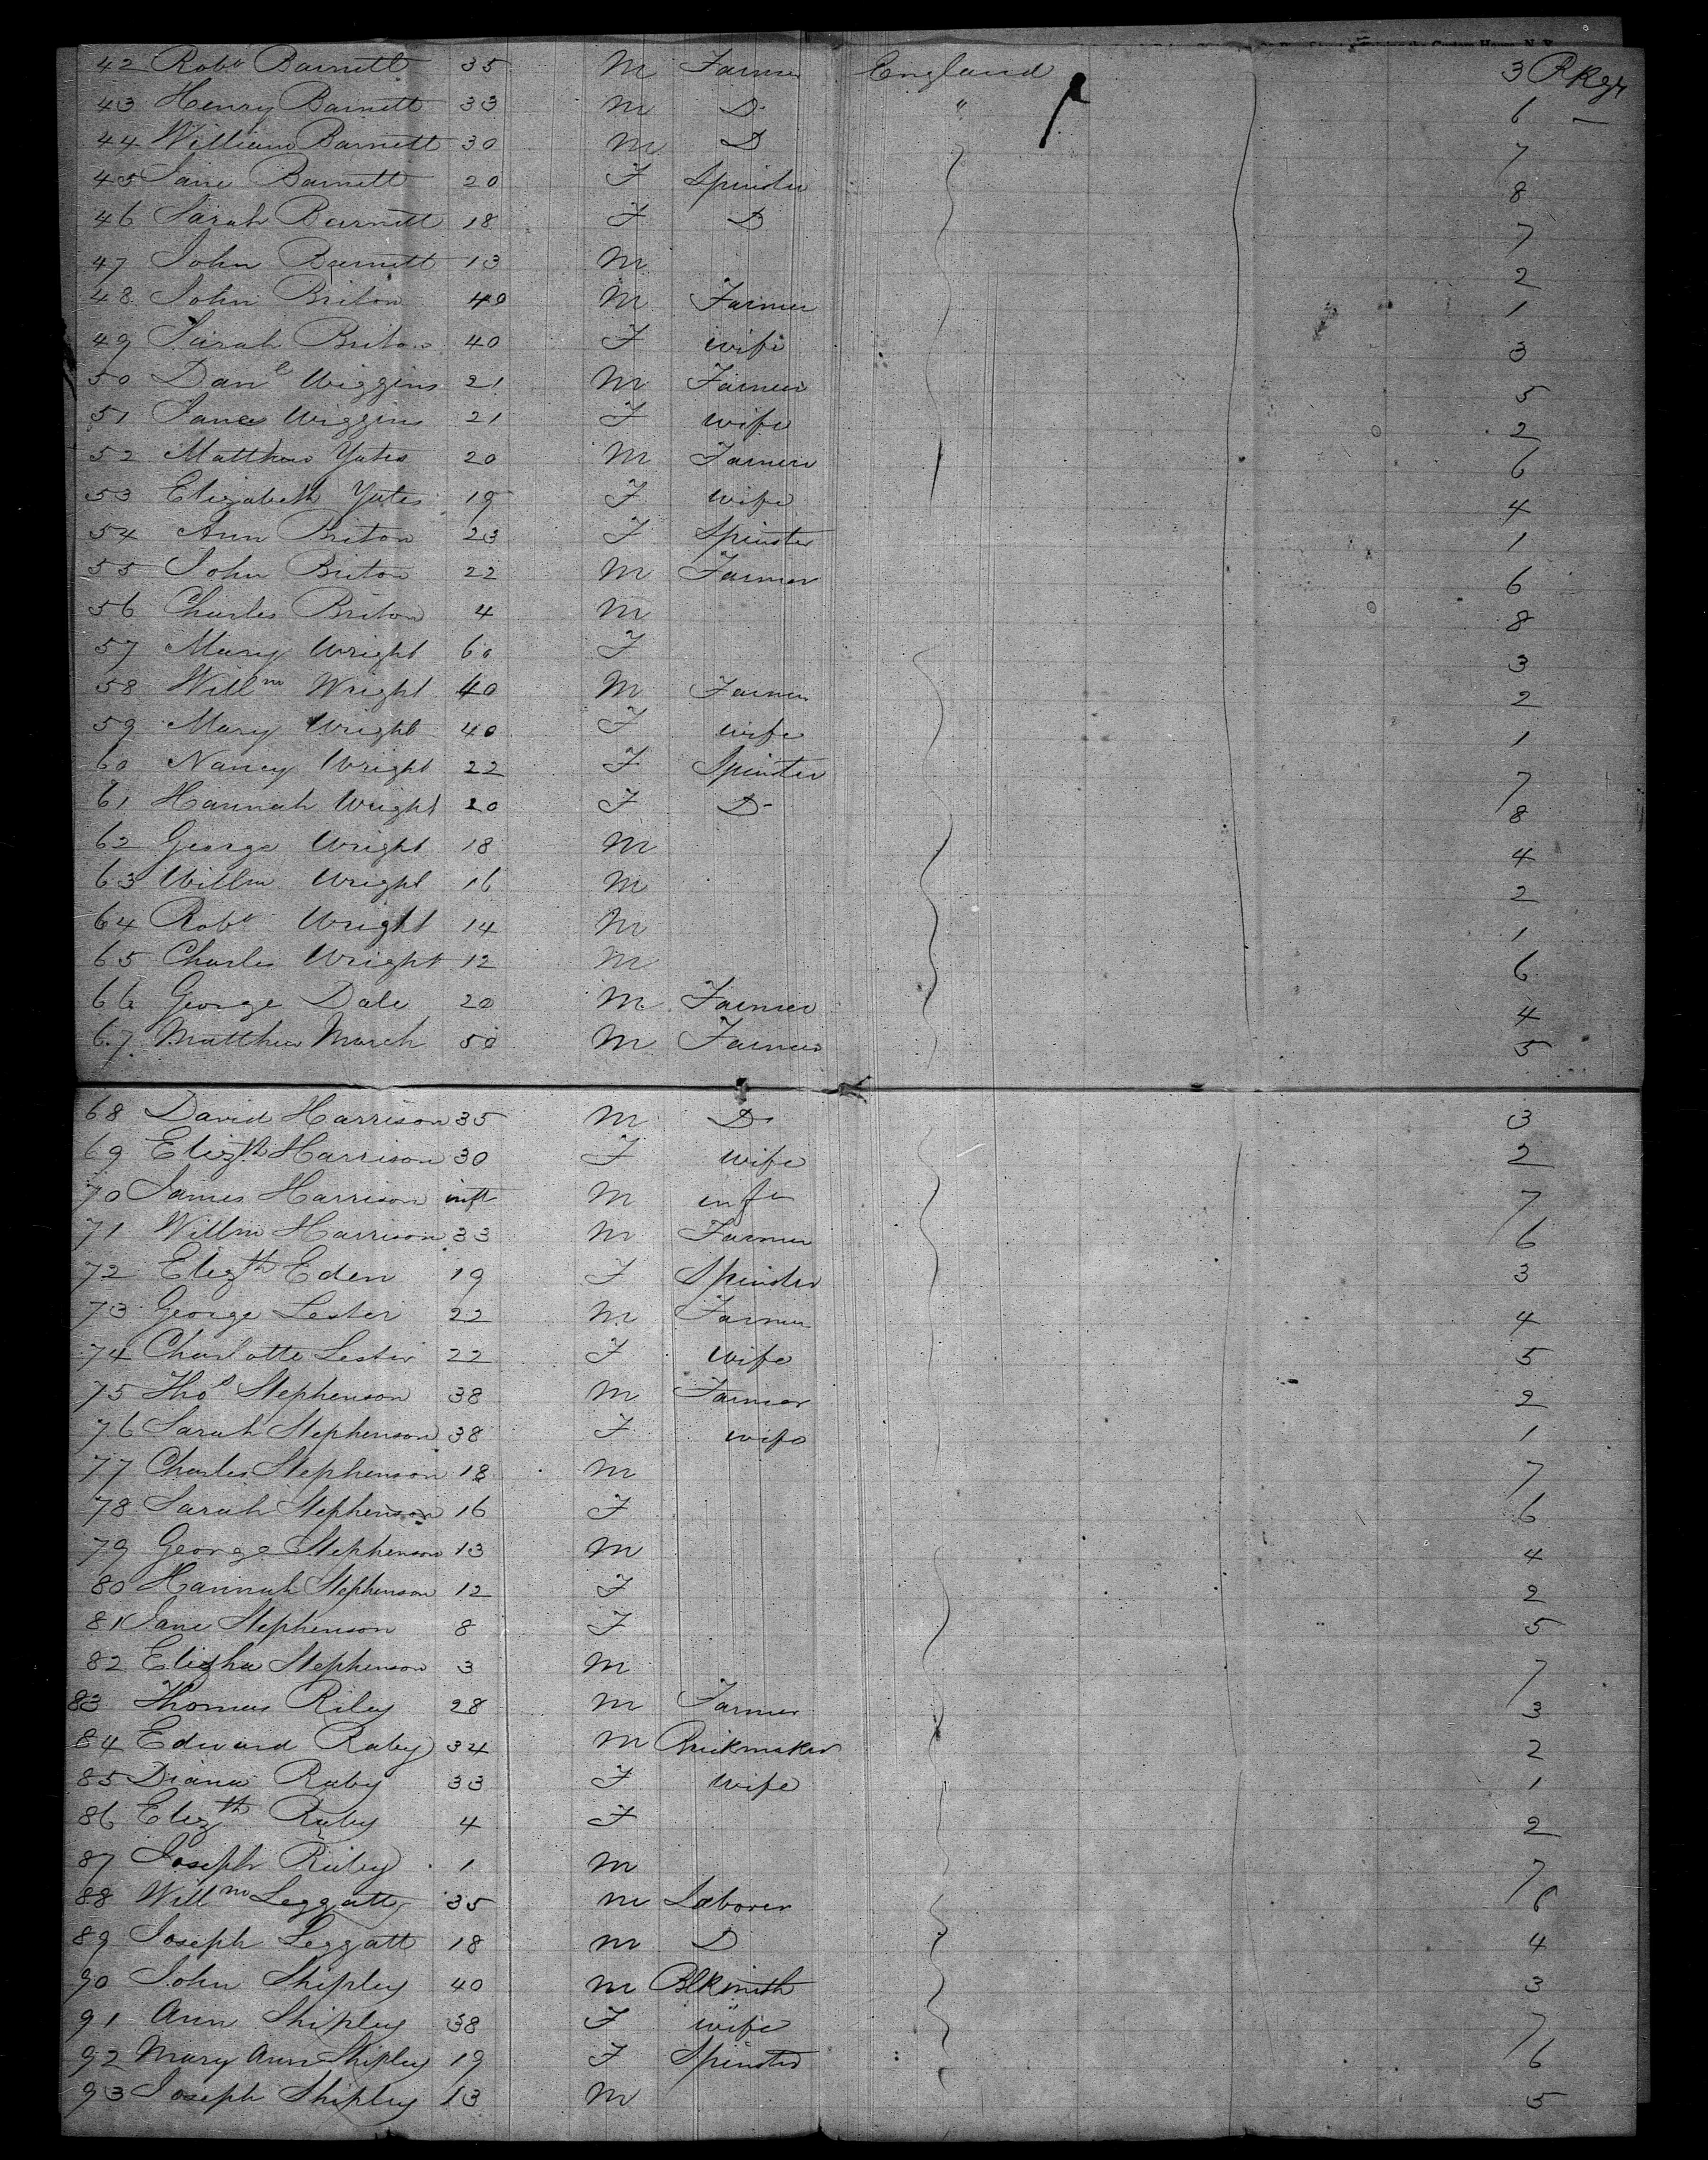 42 Robt Barnett 35 M Farmer England 3 Pkgs
43 Henry Barnett 33 M D " 6 —
44 William Barnett 30 M D 7
45 Jane Barnett 20 F Spinster 8
46 Sarah Barnett 18 F D 7
47 John Barnett 13 M 2
48 John Briton 40 M Farmer 1
49 Sarah Briton 40 F wife 3
50 Danl Wiggins 21 M Farmer 5
51 Jane Wiggins 21 F wife 2
52 Matthew Yates 20 M Farmer 6
53 Elizabeth Yates 19 F wife 4
54 Ann Briton 23 F Spinster 1
55 John Briton 22 M Farmer 6
56 Charles Briton 4 M 8
57 Mary Wright 60 F 3
58 Willm Wright 40 M Farmer 2
59 Mary Wright 40 F wife 1
60 Nancy Wright 22 F Spinster 7
61 Hannah Wright 20 F D 8
62 George Wright 18 M 4
63 Willm Wright 16 M 2
64 Robt Wright 14 M 1
65 Charles Wright 12 M 6
66 George Dale 20 M Farmer 4
67 Matthew March 50 M Farmer 5
68 David Harrison 35 M Do 3
69 Elizth Harrison 30 F wife 2
70 James Harrison inft M inft 7
71 Willm Harrison 33 M Farmer 6
72 Elizth Eden 19 F Spinster 3
73 George Lester 22 M Farmer 4
74 Charlotte Lester 22 F wife 5
75 Thos Stephenson 38 M Farmer 2
76 Sarah Stephenson 38 F wife 1
77 Charles Stephenson 18 M 7
78 Sarah Stephenson 16 F 6
79 George Stephenson 13 M 4
80 Hannah Stephenson 12 F 2
81 Jane Stephenson 8 F 5
82 Elizha Stephenson 3 M 7
83 Thomas Riley 28 M Farmer 3
84 Edward Raby 34 M Brickmaker 2
85 Diana Raby 33 F wife 1
86 Elizth Raby 4 F 2
87 Joseph Raby 1 M 7
88 Willm Leggatt 35 M Laborer 6
89 Joseph Leggatt 18 M D 4
90 John Shipley 40 M Blksmith 3
91 Ann Shipley 38 F wife 7
92 Mary Ann Shipley 19 F Spinster 6
93 Joseph Shipley 13 M 5